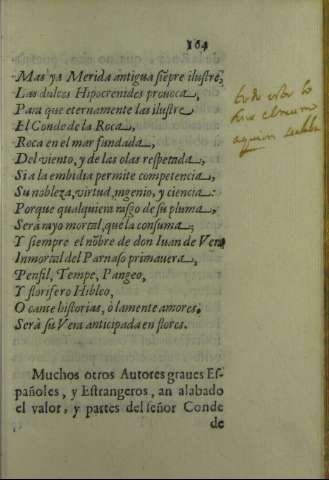 164
Mas ya Merida antigua siẽpre ilustre,
Las dulces Hipocrenides prouoca,
Para que eternamente las ilustre
El Conde de la Roca,
Roca en el mar fundada,
Del viento, y de las olas respetada,
Si a la embidia permite competencia,
Su nobleza, virtud, ingenio, y ciencia:
Porque qualquiera rasgo de su pluma,
Serà rayo mortal, que la consuma,
Y siempre el nõbre de don Iuan de Vera
Inmortal del Parnaso primauera,
Pensil, Tempe, Pangeo,
Y florifero Hibleo,
O cante historias, ò lamente amores,
Serà su Vera anticipada en flores.
todo esto lo
Muchos otros Autores graues Es-
pañoles, y Estrangeros, an alabado
el valor, y partes del señor Conde
de